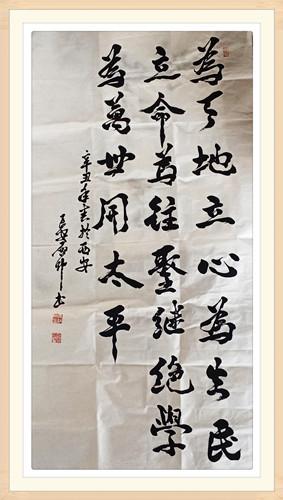 為天地立心為生民
立命為往聖継絶學
為萬世開太平
辛丑年書於西安